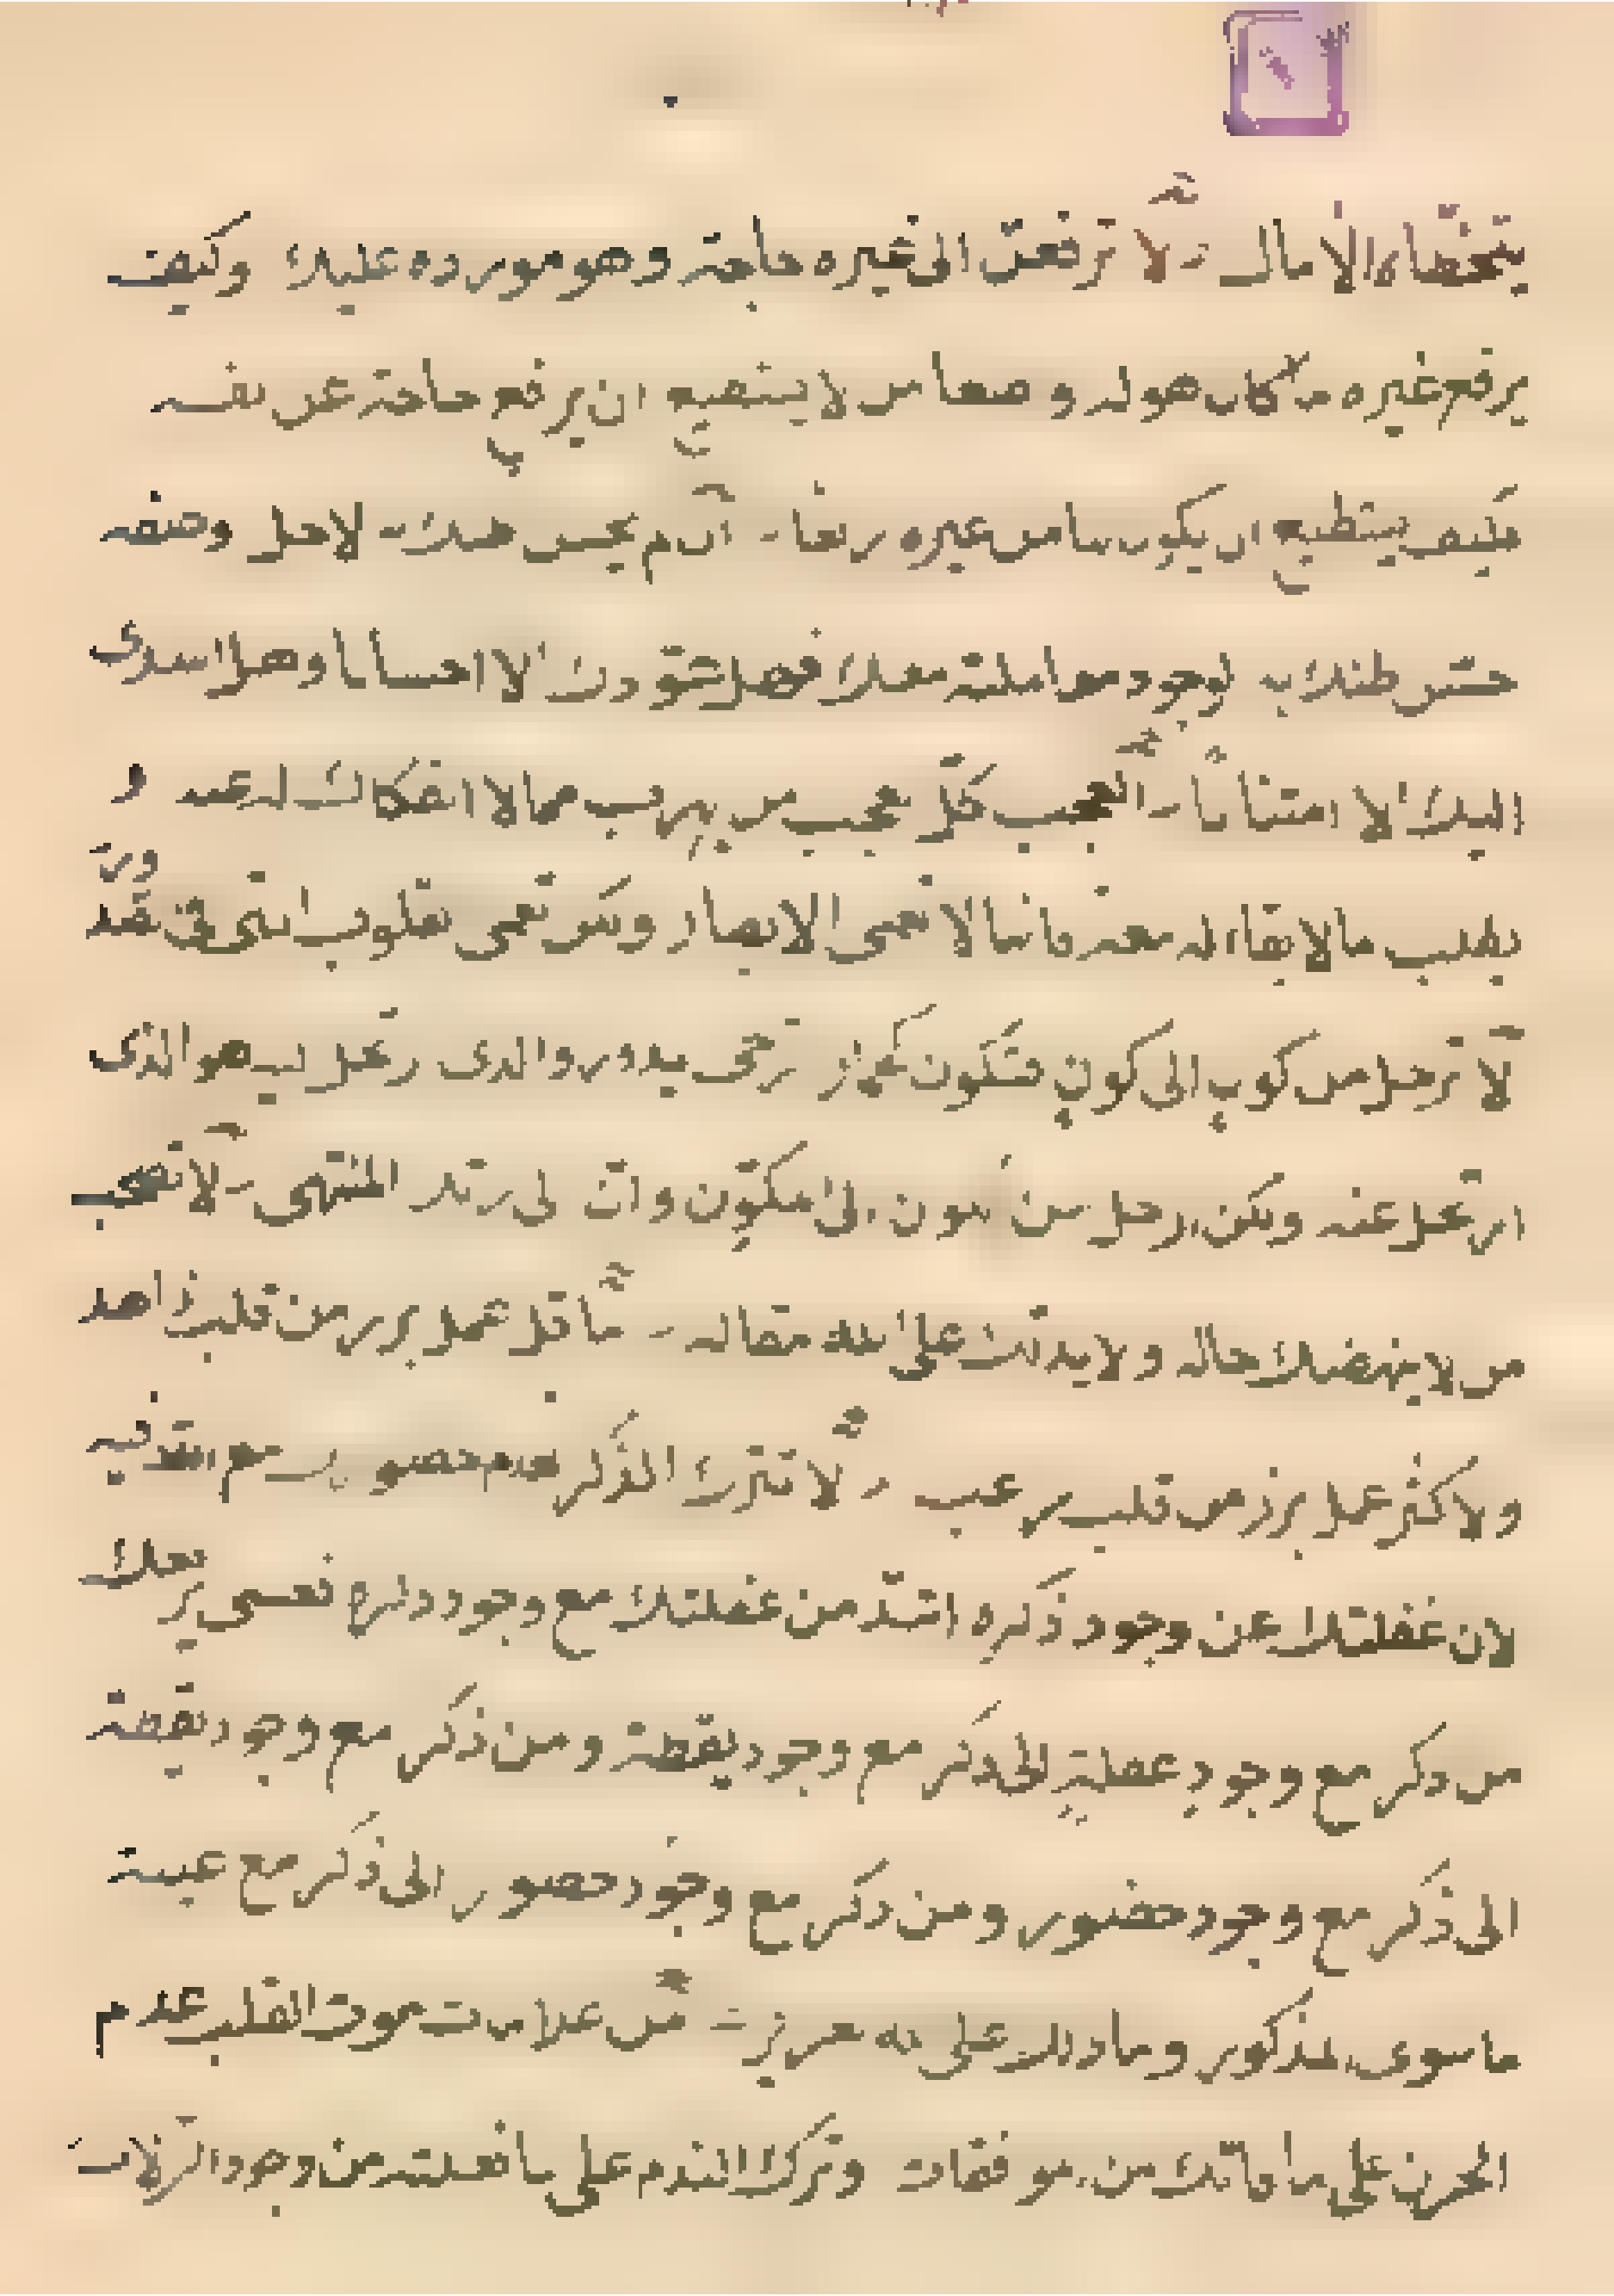 يتخطاه الآمال لا ترفعن الى غيره حاجة وهو مورده عليك وكيف
يرفع غيره ما كان هو له وضعا من لا يستطيع ان يرفع حاجة عن نفسه
فكيف يستطيع ان يكون لها من غيره رافعا ان لم يحسن ظنك به لاجل وصفه
حسّن ظنك به لوجود معاملته معك فهل عوّدك الا احسانا وهل اسدى
اليك الا امتنانا العجب كلّ العجب من يهرب مما لا انفكاك له عنه و
يطلب ما لا بقاء له معه فانها لا تعمى الابصار ولكن تعمى القلوب التى فى الصدور
لا ترحل من كون الى كون فتكون كحمار الرحى يدور والذى ارتحل اليه هو الذى
ارتحل عنه ولكن ارحل من الاكوان الى المكوّن وانّ الى ربك المنتهى لا تصحب
من لا ينهضك حاله ولا يدلّك على الله مقاله ما قل عمل برز من قلب زاهد
ولا كثر عمل برز من قلب راغب لا تترك الذكر لعدم حضورك مع الله فيه
لان غفلتك عن وجود ذكره اشدّ من غفلتك مع وجود ذكره فعسى يرفعك
من ذكر مع وجود غفلة الى ذكر مع وجود يقظة ومن ذكر مع وجود يقظة
الى ذكر مع وجود حضور ومن ذكر مع وجود حضور الى ذكر مع غيبة
ما سوى المذكور وما ذلك على الله بعزيز من علامات موت القلب عدم
الحزن على ما فاتك من الموافقات وترك الندم على ما فعلته من وجود الزلات